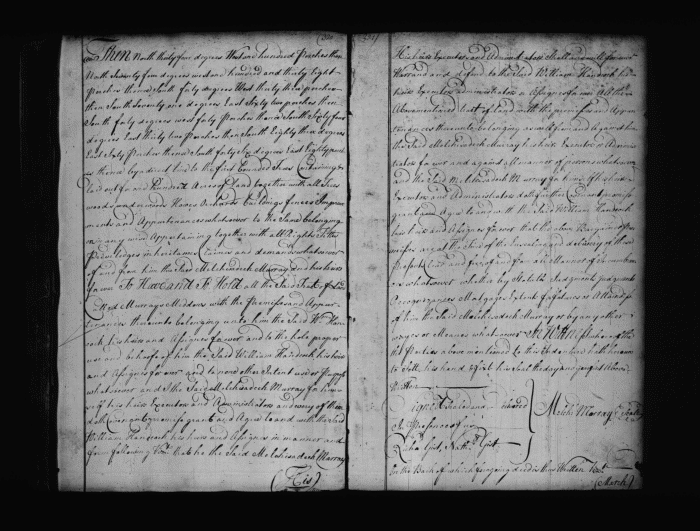 Then North thirty four degrees West one hundred Perches then
North Seventy four degrees west one hundred and thirty Eight
perches then South forty degrees West thirty three perches
then South Seventy one degrees East Sixty two perches then
South forty degrees west forty Perches then South Sixty four
degrees East thirty two Perches then South Eighty three degrees
East Sixty Perches then South forty six degrees East Eighty
then by a direct line to the first bounded Trees Containing &
laid out for one hundred Acres of Land together with all Trees
woods and under Houses Orchards Buildings fences Improve
ments and Appurtenances whatsoever to the Same belonging
or in any wise Appertaining together with all Rights Titles
Priviledges inheritance Claims and demands whatsoever
of and from him the Said Melchisadeck Murray and his heirs
for ever To Have and To Hold all the Said Tract of Land
Called Murrays Middows with the Premises and Appur
tenances thereunto belonging unto him the Said Wm Han
cock his heirs and Assigns for ever and to the Sole proper
use and behoof of him the Said William Hancock his heirs
and Assigns for ever and to none other Intent use or Purpose
whatsoever and I the Said Melchisadeck Murray for
my Self his heirs Executors and Administrators and every of them
doth Covenant promise grant and Agree to and with the Said
William Hancock his heirs and Assigns in manner and
form following Vizt that he the Said Melchisadeck Murray
(His)
His heirs Executors and Administrators Shall and will for ever
Warrant and defend to the Said William Hancock his
heirs Executors administrators or Assigns for ever All the
Abovementioned Tract of Land with the premises and Appur
tenances thereunto belonging as well from and Against him
the Said Melchisadeck Murray his heirs Executors or Adminis
trators for ever and against All manner of persons whatsoever
and the Said Melchisadeck Murray for him Self his heirs
Executors and Administrators doth further Covenant promise
grant and Agree to and with the Said William Hancock
his heirs and Assigns for ever that the Above Bargained Pre
mises are at the time of the Ensealing and delivery of these
presents Clear and free of and from all Manner of Incumbran
ces whatsoever whether by Statute Judgments
Recognizances Mortgages Extents forfeitures or
of him the Said Melchisadeck Murray or by any other
ways or Means whatsoever In Witness whereof the
first Parties above mentioned to this Indenture hath hereunto
Sett his hand & fixt his Seal the day and year first Above
Written
Signed Sealed and delivered
In the presence of us
Melchr Murray Seal
Gist, Nathl Gist
On the Back of which foregoing deed is thus Written Vizt
(March)